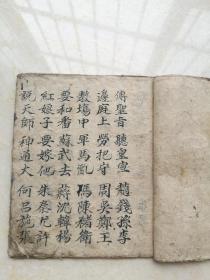 傳聖旨 聽皇宣 趙錢孫李
邊庭上 勞把守 周吳鄭王
教塲中 軍馬亂 馮陳褚衛
要和番 蘇武去 蔣沈韓楊
紅娘子 要嫁他 朱秦尤許
說天師 神通大 何吕施張